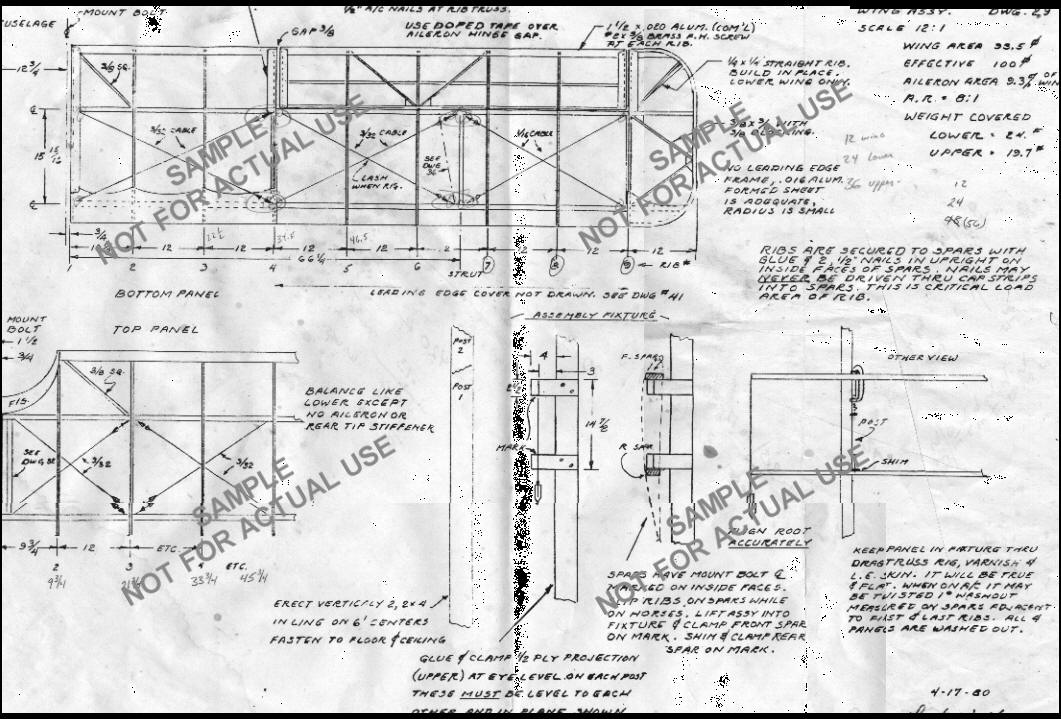 MOUNT BOLT
FUSELAGE
1/2" A/C NAILS AT RIB TRUSS.
USE DOPED TAPE OVER
AILERON HINGE GAP.
GAP 3/8
1 1/2 x .020 ALUM. (COM'L)
#2 x 3/8 BRASS P.H. SCREW
AT EACH RIB.
WING ASSY. DWG. 29
SCALE 12:1
WING AREA 93.5 #
EFFECTIVE 100 #
AILERON AREA 9.3% OF WING
A.R. = 8:1
WEIGHT COVERED
LOWER = 24. #
UPPER = 19.7 #
12 wing
24 lower
36 upper
12
24
48 (56)
1/4 x 1/4 STRAIGHT RIB.
BUILD IN PLACE.
LOWER WING ONLY.
3/8 x 3/4 WITH
3/8 BLOCKING.
NO LEADING EDGE
FRAME, .016 ALUM.
FORMED SHEET
IS ADEQUATE,
RADIUS IS SMALL
12 3/4
3/8 SQ.
3/32 CABLE
3/32 CABLE
1/16 CABLE
LASH
WHEN RIG.
SEE
DWG
36
15
3/4
12 12 12 12 12 12 12
22 1/2
34.5
46.5
66 1/4
STRUT
1 2 3 4 5 6 7 8 9 RIB #
BOTTOM PANEL
LEADING EDGE COVER NOT DRAWN. SEE DWG #41
RIBS ARE SECURED TO SPARS WITH
GLUE & 2, 1/2" NAILS IN UPRIGHT ON
INSIDE FACES OF SPARS. NAILS MAY
NEVER BE DRIVEN THRU CAP STRIPS
INTO SPARS. THIS IS CRITICAL LOAD
AREA OF RIB.
MOUNT
BOLT
1 1/2
3/4
TOP PANEL
3/8 SQ.
FIG.
SEE
DWG. 32
3/32
3/32
BALANCE LIKE
LOWER EXCEPT
NO AILERON OR
REAR TIP STIFFENER
9 3/4 12 ETC.
2 3 4 ETC.
9 3/4 21 3/4 33 3/4 45 3/4
ASSEMBLY FIXTURE
POST
2
POST
1
4
3
14 7/8
MARK
F. SPAR
R SPAR
OTHER VIEW
POST
SHIM
ALIGN ROOT
ACCURATELY
ERECT VERTICALLY 2, 2x4
IN LINE ON 6' CENTERS
FASTEN TO FLOOR & CEILING
GLUE & CLAMP 1/2 PLY PROJECTION
(UPPER) AT EYE LEVEL ON EACH POST
THESE MUST BE LEVEL TO EACH
OTHER AND IN PLANE SHOWN
SPARS HAVE MOUNT BOLT ℄
MARKED ON INSIDE FACES.
SLIP RIBS ON SPARS WHILE
ON HORSES. LIFT ASSY INTO
FIXTURE & CLAMP FRONT SPAR
ON MARK. SHIM & CLAMP REAR
SPAR ON MARK.
KEEP PANEL IN FIXTURE THRU
DRAGTRUSS RIG, VARNISH &
L.E. SKIN. IT WILL BE TRUE
& FLAT. WHEN ON A/C IT MAY
BE TWISTED 1° WASHOUT
MEASURED ON SPARS ADJACENT
TO FIRST & LAST RIBS. ALL 4
PANELS ARE WASHED OUT.
4-17-80
SAMPLE
NOT FOR ACTUAL USE
SAMPLE
NOT FOR ACTUAL USE
SAMPLE
NOT FOR ACTUAL USE
SAMPLE
NOT FOR ACTUAL USE
SAMPLE
NOT FOR ACTUAL USE